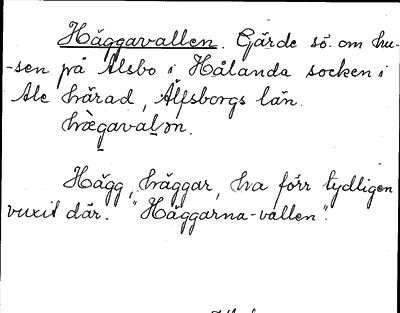 Häggavallen. Gärde sö. om hu-
-sen på Alsbo i Hålanda socken i
Ale härad, Älfsborgs län.
hægavalən.
Hägg, häggar, ha förr tydligen
vuxit där. "Häggarna-vallen".